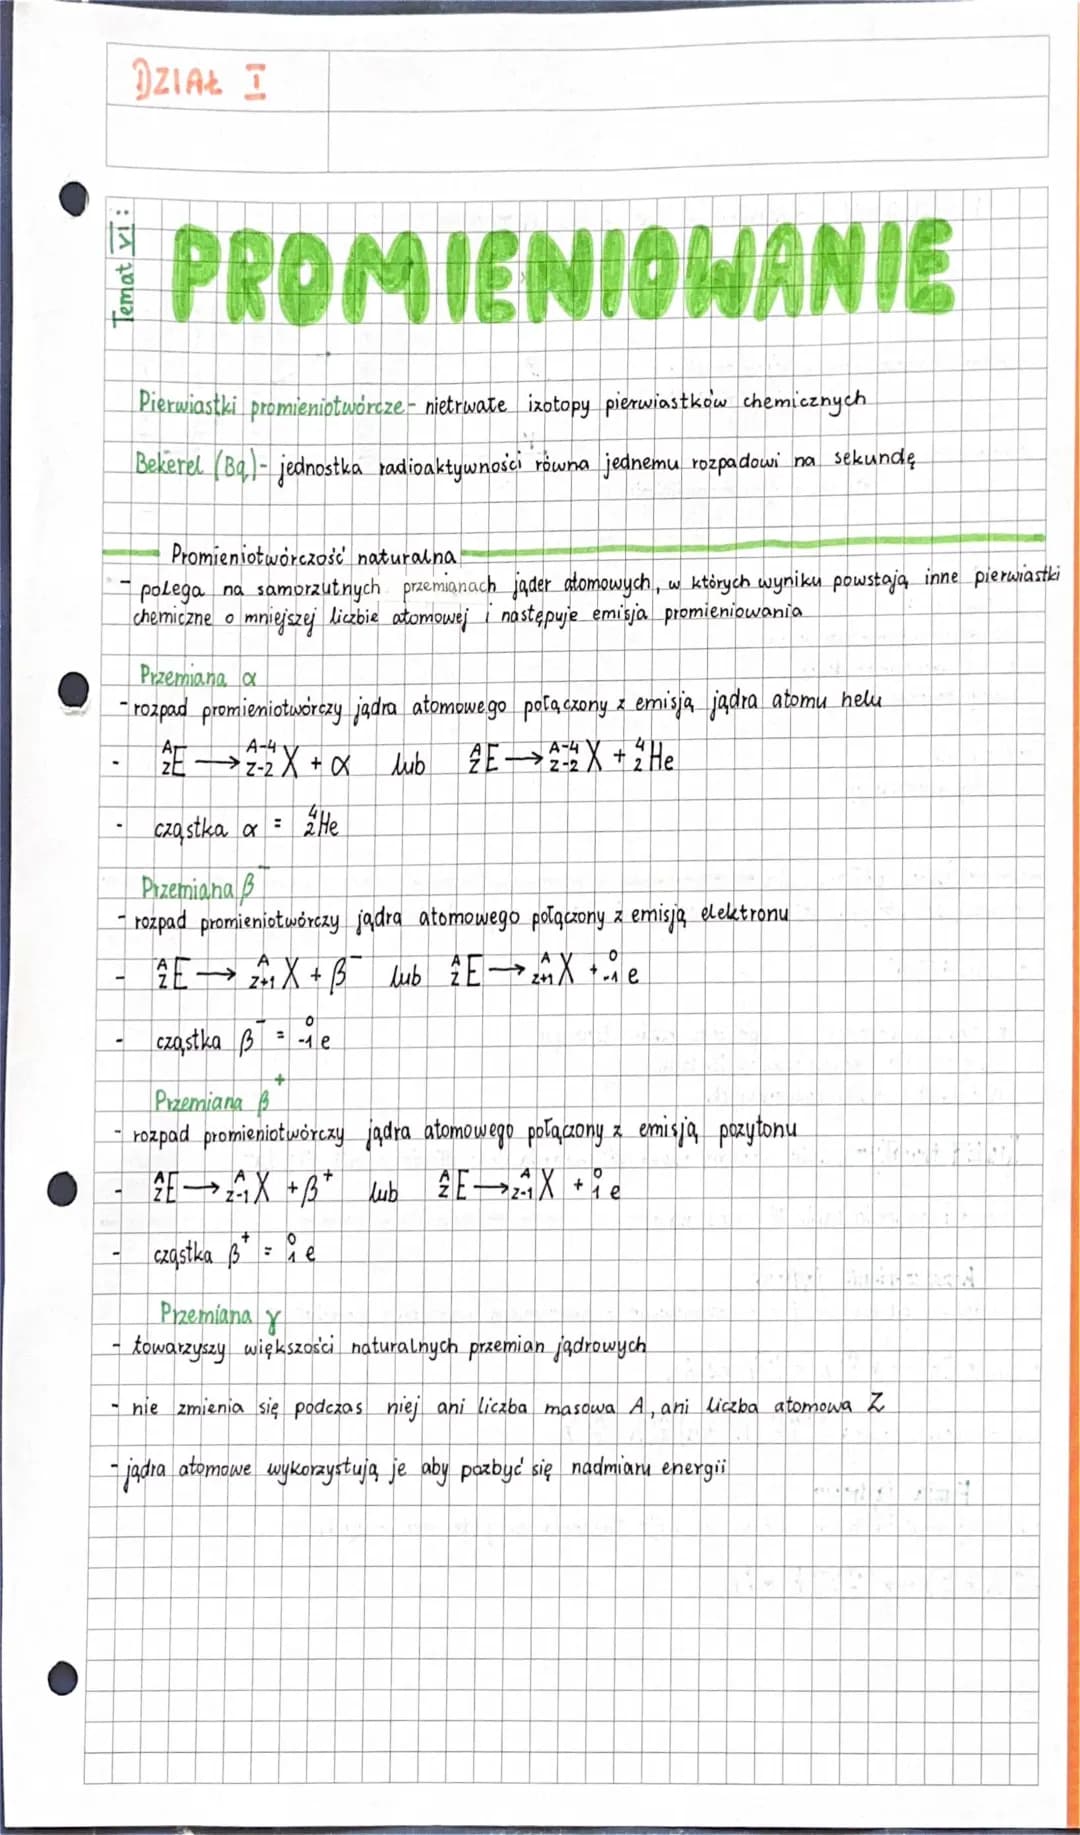 DZIAŁ I
Temat VI:
PROMIENIOWANIE
Pierwiastki promieniotwórcze - nietrwałe izotopy pierwiastków chemicznych
Bekerel (Bq) - jednostka radioaktywności równa jednemu rozpadowi na sekundę
Promieniotwórczość naturalna
- polega na samorzutnych przemianach jąder atomowych, w których wyniku powstają inne pierwiastki
chemiczne o mniejszej liczbie atomowej i następuje emisja promieniowania
Przemiana α
- rozpad promieniotwórczy jądra atomowego połączony z emisją jądra atomu helu
- ᴬ_Z E → ᴬ⁻⁴_Z-2 X + α lub ᴬ_Z E → ᴬ⁻⁴_Z-2 X + ⁴₂He
- cząstka α = ⁴₂He
Przemiana β⁻
- rozpad promieniotwórczy jądra atomowego połączony z emisją elektronu
- ᴬ_Z E → ᴬ_Z+1 X + β⁻ lub ᴬ_Z E → ᴬ_Z+1 X + ⁰₋₁e
- cząstka β⁻ = ⁰₋₁e
Przemiana β⁺
- rozpad promieniotwórczy jądra atomowego połączony z emisją pozytonu
- ᴬ_Z E → ᴬ_Z-1 X + β⁺ lub ᴬ_Z E → ᴬ_Z-1 X + ⁰₁e
- cząstka β⁺ = ⁰₁e
Przemiana γ
- towarzyszy większości naturalnych przemian jądrowych
- nie zmienia się podczas niej ani liczba masowa A, ani liczba atomowa Z
- jądra atomowe wykorzystują je aby pozbyć się nadmiaru energii